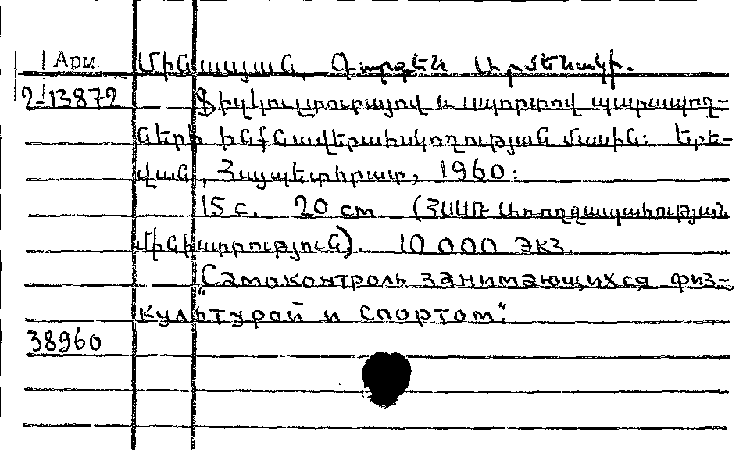 Арм Մինասյան, Գուրգեն Արմենակի.
2-13872 Ֆիզկուլտուրայով և սպորտով պարապող-
ների ինքնավերահսկողության մասին: Երե-
վան, Հայպետհրատ, 1960:
15 с. 20 cm (ՀՍՍՌ Առողջապահության
մինիստրություն). 10 000 экз.
"Самоконтроль занимающихся физ-
культурой и спортом".
38960